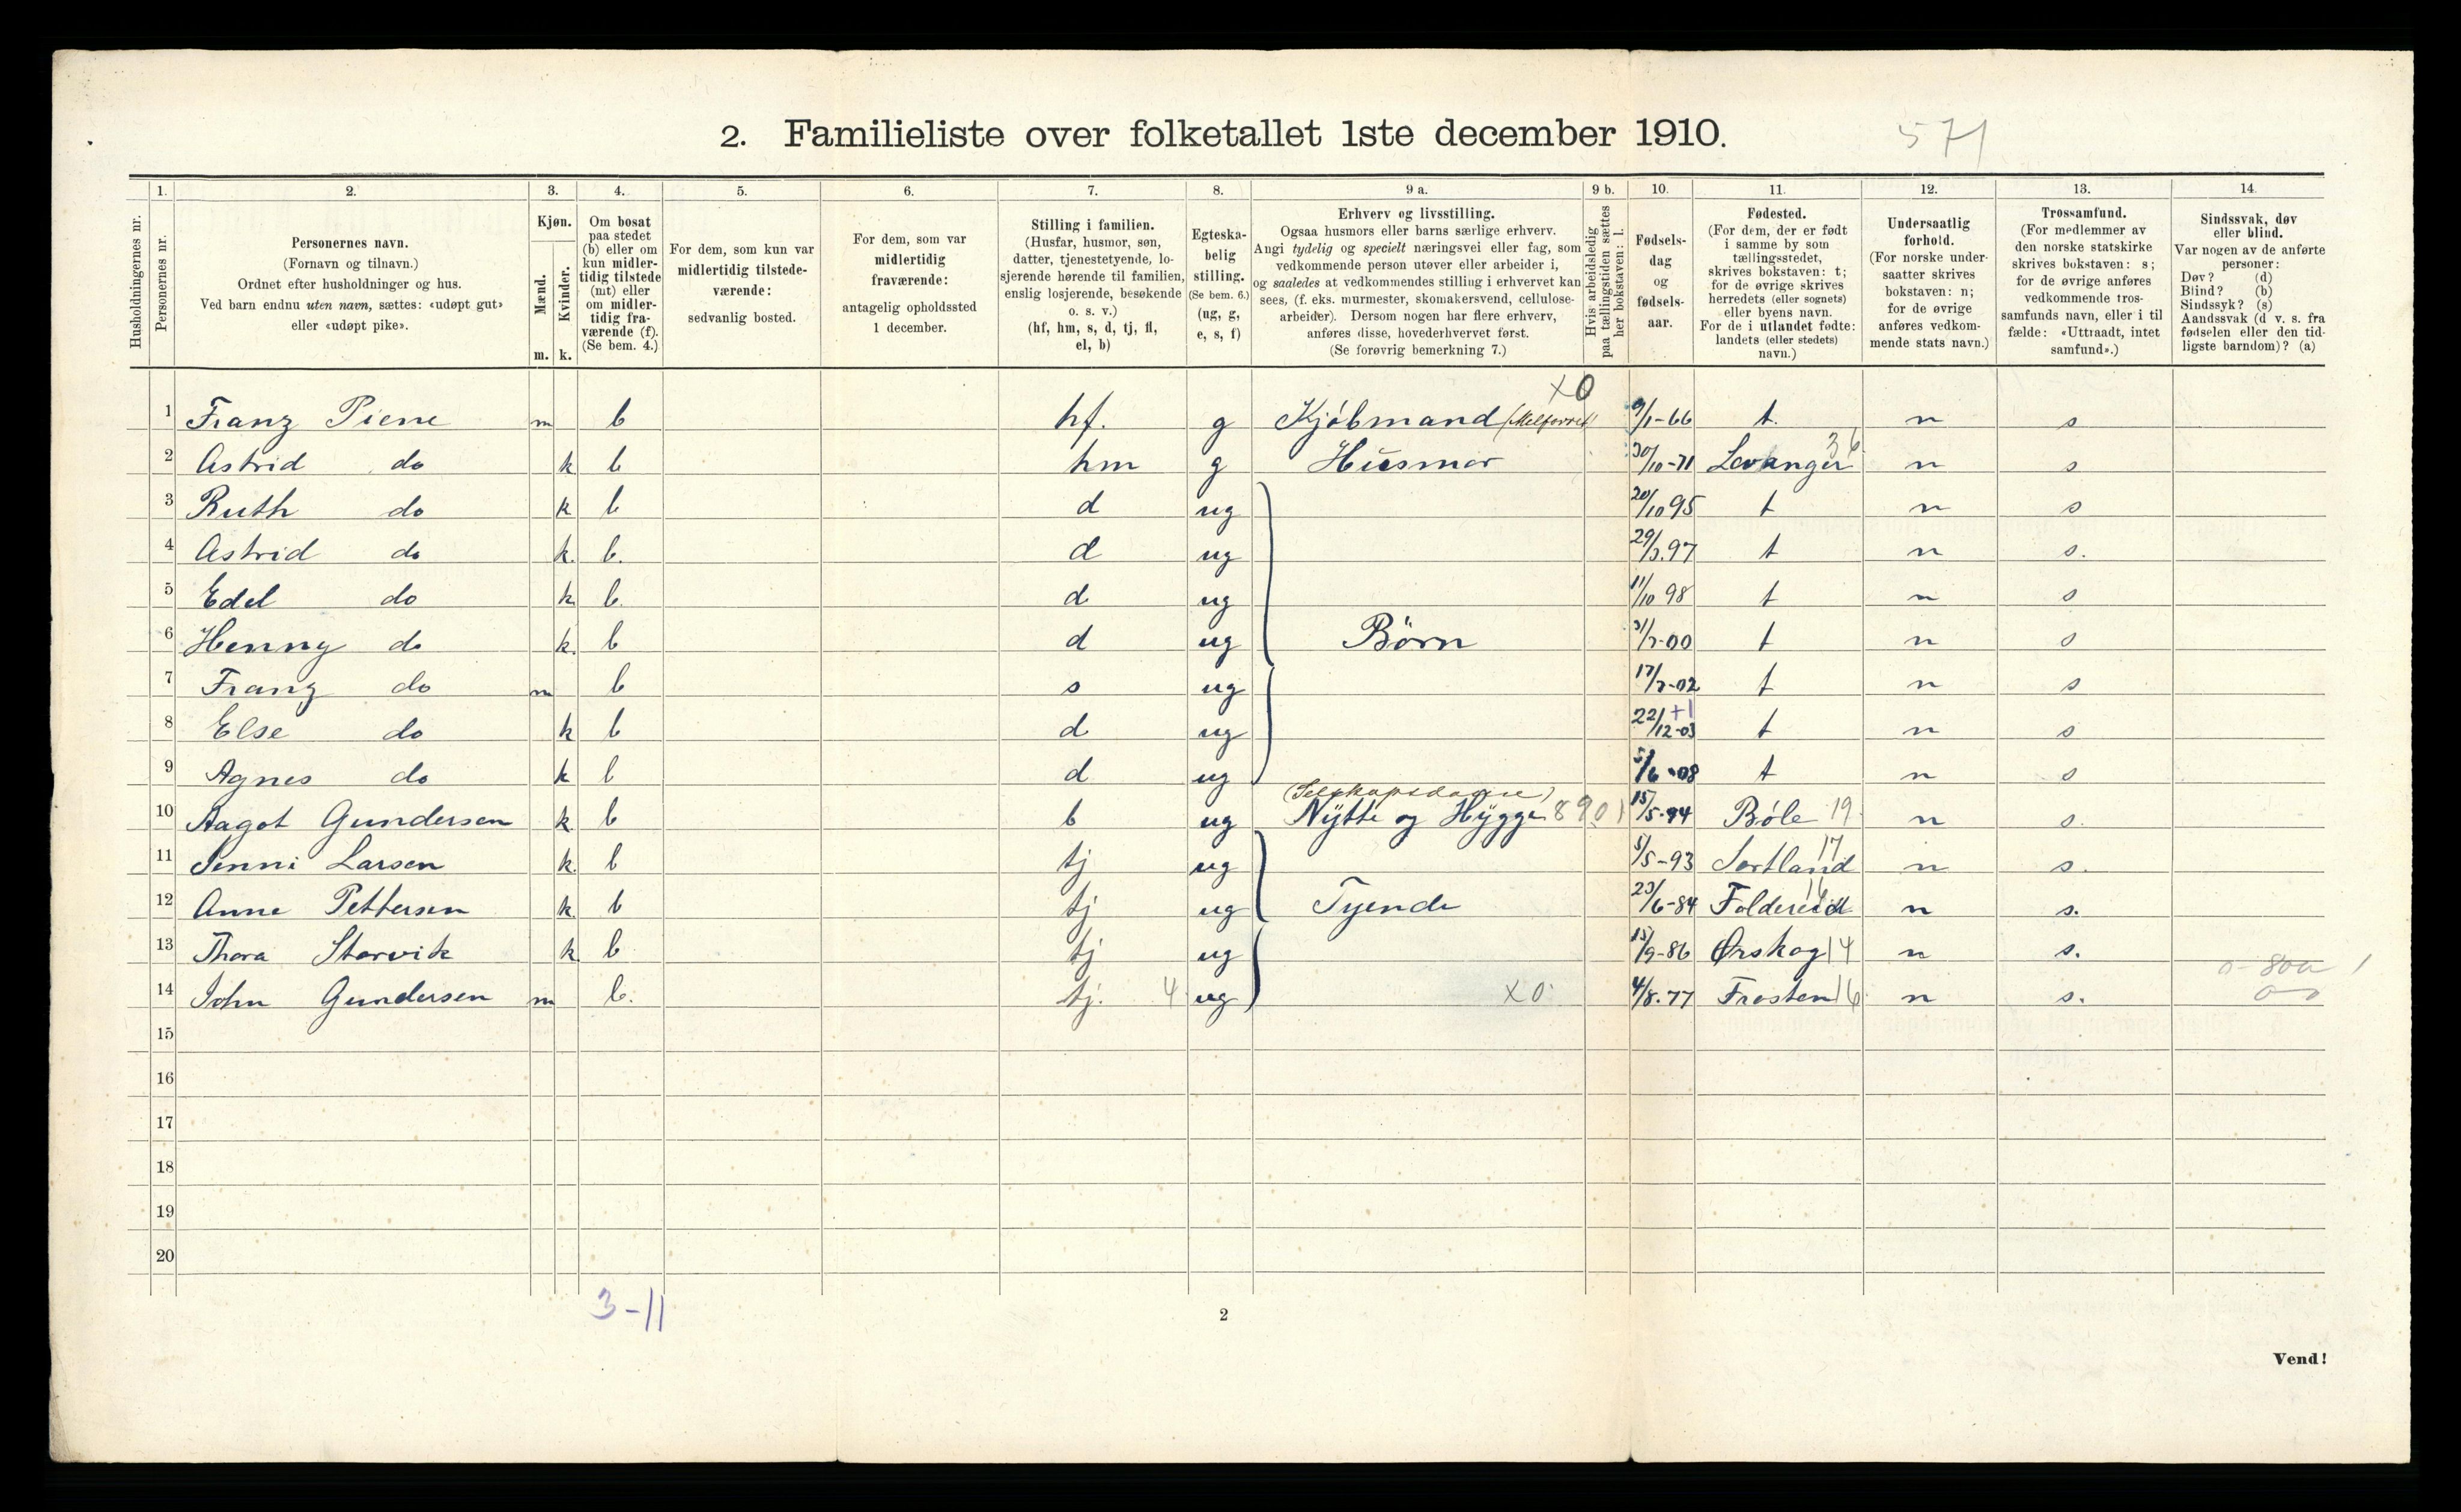 2. Familieliste over folketallet 1ste december 1910.
571
1. 2. 3. 4. 5. 6. 7. 8. 9 a. 9 b. 10. 11. 12. 13. 14.
Husholdningernes nr.
Personernes nr.
Personernes navn.
(Fornavn og tilnavn.)
Ordnet efter husholdninger og hus.
Ved barn endnu uten navn, sættes: «udøpt gut»
eller «udøpt pike».
Kjøn.
Mænd.
Kvinder.
m. k.
Om bosat
paa stedet
(b) eller om
kun midler-
tidig tilstede
(mt) eller
om midler-
tidig fra-
værende (f).
(Se bem. 4.)
For dem, som kun var
midlertidig tilstede-
værende:
sedvanlig bosted.
For dem, som var
midlertidig
fraværende:
antagelig opholdssted
1 december.
Stilling i familien.
(Husfar, husmor, søn,
datter, tjenestetyende, lo-
sjerende hørende til familien,
enslig losjerende, besøkende
o. s. v.)
(hf, hm, s, d, tj, fl,
el, b)
Egteska-
belig
stilling.
(Se bem. 6.)
(ug, g,
e, s, f)
Erhverv og livsstilling.
Ogsaa husmors eller barns særlige erhverv.
Angi tydelig og specielt næringsvei eller fag, som
vedkommende person utøver eller arbeider i,
og saaledes at vedkommendes stilling i erhvervet kan
sees, (f. eks. murmester, skomakersvend, cellulose-
arbeider). Dersom nogen har flere erhverv,
anføres disse, hovederhvervet først.
(Se forøvrig bemerkning 7.)
Hvis arbeidsledig
paa tællingstiden sættes
her bokstaven: l.
Fødsels-
dag
og
fødsels-
aar.
Fødested.
(For dem, der er født
i samme by som
tællingsstedet,
skrives bokstaven: t;
for de øvrige skrives
herredets (eller sognets)
eller byens navn.
For de i utlandet fødte:
landets (eller stedets)
navn.)
Undersaatlig
forhold.
(For norske under-
saatter skrives
bokstaven: n;
for de øvrige
anføres vedkom-
mende stats navn.)
Trossamfund.
(For medlemmer av
den norske statskirke
skrives bokstaven: s;
for de øvrige anføres
vedkommende tros-
samfunds navn, eller i til
fælde: «Uttraadt, intet
samfund».)
Sindssvak, døv
eller blind.
Var nogen av de anførte
personer:
Døv? (d)
Blind? (b)
Sindssyk? (s)
Aandssvak (d v. s. fra
fødselen eller den tid-
ligste barndom)? (a)
x0
1 Franz Piene m b hf. g Kjøbmand 9/1-66 t. n s
2 Astrid do k b hm g Husmor 30/10-71 Levanger 36 n s
3 Ruth do k b d ug 20/10 95 t n s
4 Astrid do k. b. d ug 29/3.97 t n s.
5 Edel do k b. d ug 11/10 98 t n s
6 Henny do k. b d ug Børn 31/7-00 t n s
7 Franz do m b s ug 17/7-02 t n s
+1
8 Else do k b d ug 22/12-03 t n s
9 Agnes do k b d ug 5/6-08 t n s
(Selskapsdame)
10 Aagot Gundersen k b b ug Nytte og Hygge 8901 15/5-94 Bøle 19 n s.
11 Jenni Larsen k. b tj ug 5/5-93 Sortland 17 n s.
12 Anne Pettersen k b tj ug Tyende 23/6-84 Foldereid 16 n s.
13 Thora Storvik k b tj ug 15/9-86 Ørskog 14 n s.
14 John Gundersen m b. tj. 4 ug x0 4/8.77 Frosten 16 n s. 0-800 1
15
16
17
18
19
20
3-11
2
Vend!